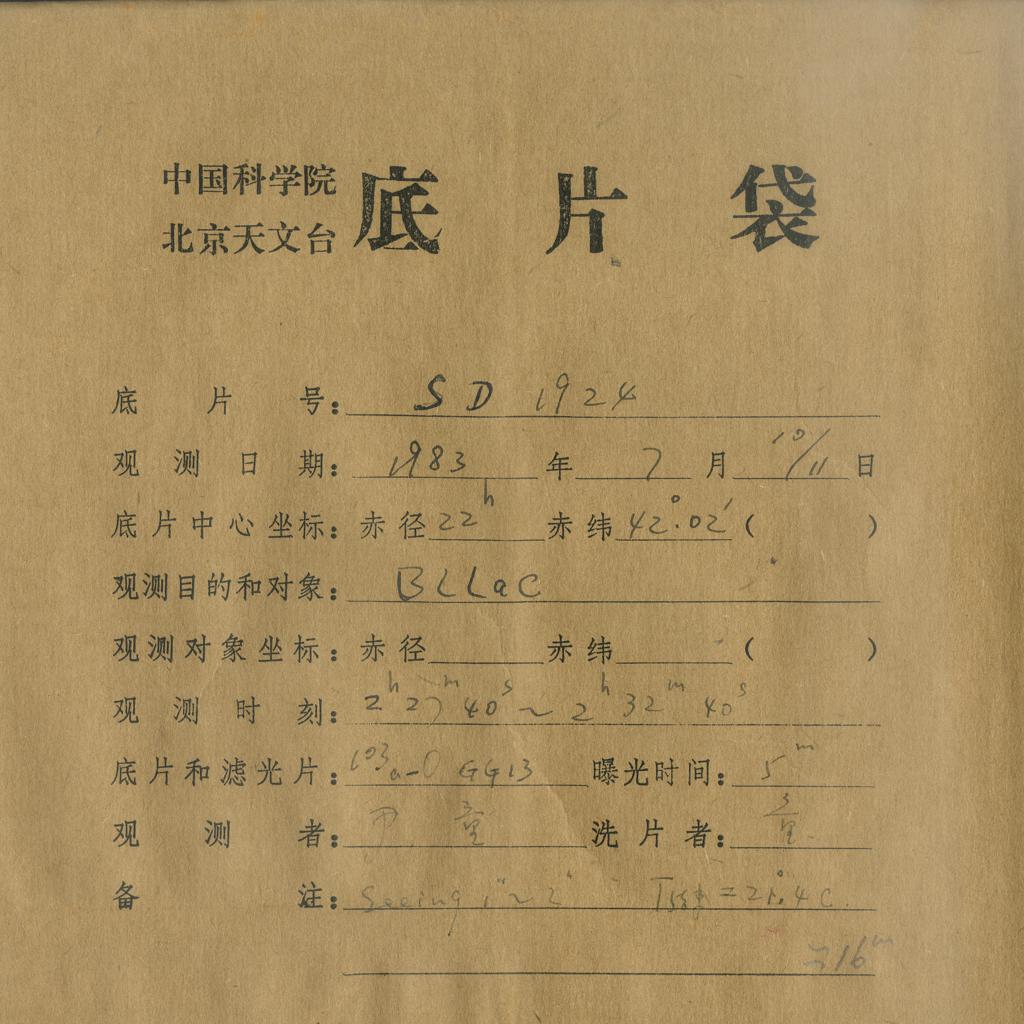 中国科学院
北京天文台
底片袋
底片号: SD 1924
观测日期: 1983 年 7 月 10/11 日
底片中心坐标: 赤径 22h 赤纬 42°.02′ ( )
观测目的和对象: BLLac
观测对象坐标: 赤径 赤纬 ( )
观测时刻: 2h 27m 40s ~ 2h 32m 40s
底片和滤光片: 103a-O GG13 曝光时间: 5m
观测者: 童 洗片者: 童
备注: Seeing 1"~2" = 21°.4C.
16m